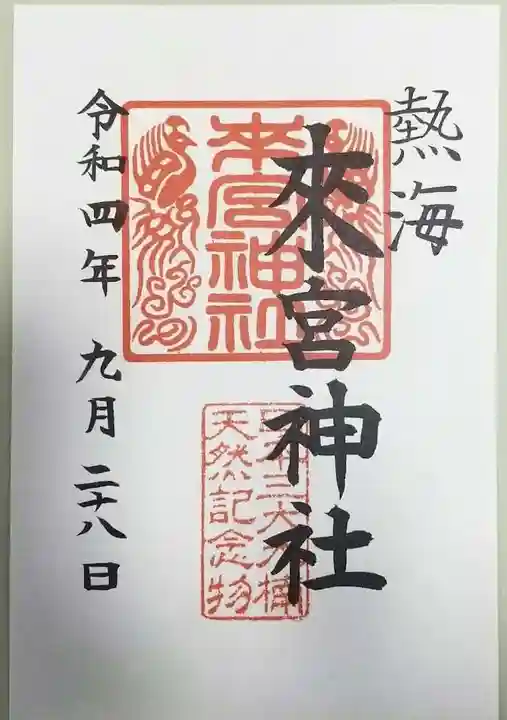 熱海
來宮神社
來宮神社
日本三大大楠
天然記念物
令和四年 九月二十八日